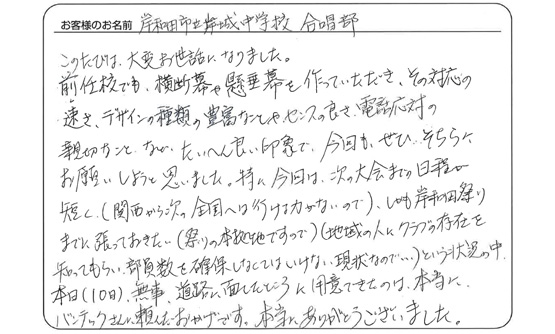 お客様のお名前 岸和田市立岸城中学校 合唱部
このたびは、大変お世話になりました。
前任校でも、横断幕や懸垂幕を作っていただき、その対応の
速さ、デザインの種類の豊富なことや、センスの良さ、電話応対の
親切なこと、なんか、たいへん良い印象で、今回も、ぜひ…そちらに
お願いしようと思いました。特に今回は、次の大会までの日程が
短く、(関西から次の全国へは行ける力がないので)、しかも岸和田祭り
までに張っておきたい(祭りの本拠地ですので)(地域の人にクラブの存在を
知ってもらい、部員数を確保しなくてはいけない現状なので…)という状況の中、
本日(10日)、無事、道路に面したところに用意できたのは、本当に
バンテックさんに頼んだおかげです。本当にありがとうございました。